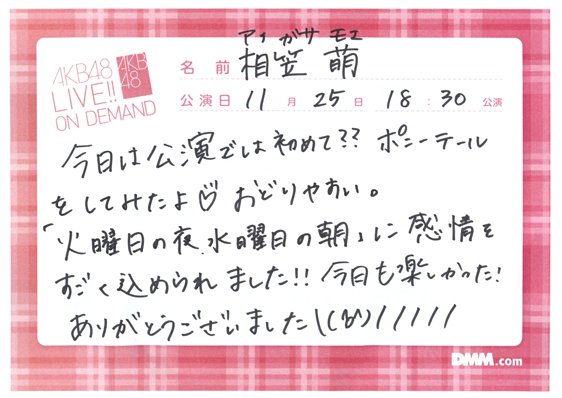 AKB48
LIVE!!
ON DEMAND
AKB
48
アイガサ モエ
名前 相笠 萌
公演日 11月25日 18:30公演
今日は公演では初めて?? ポニーテール
をしてみたよ♡ おどりやすい。
「火曜日の夜、水曜日の朝」に感情を
すごく込められました!! 今日も楽しかった!
ありがとうございました
DMM.com